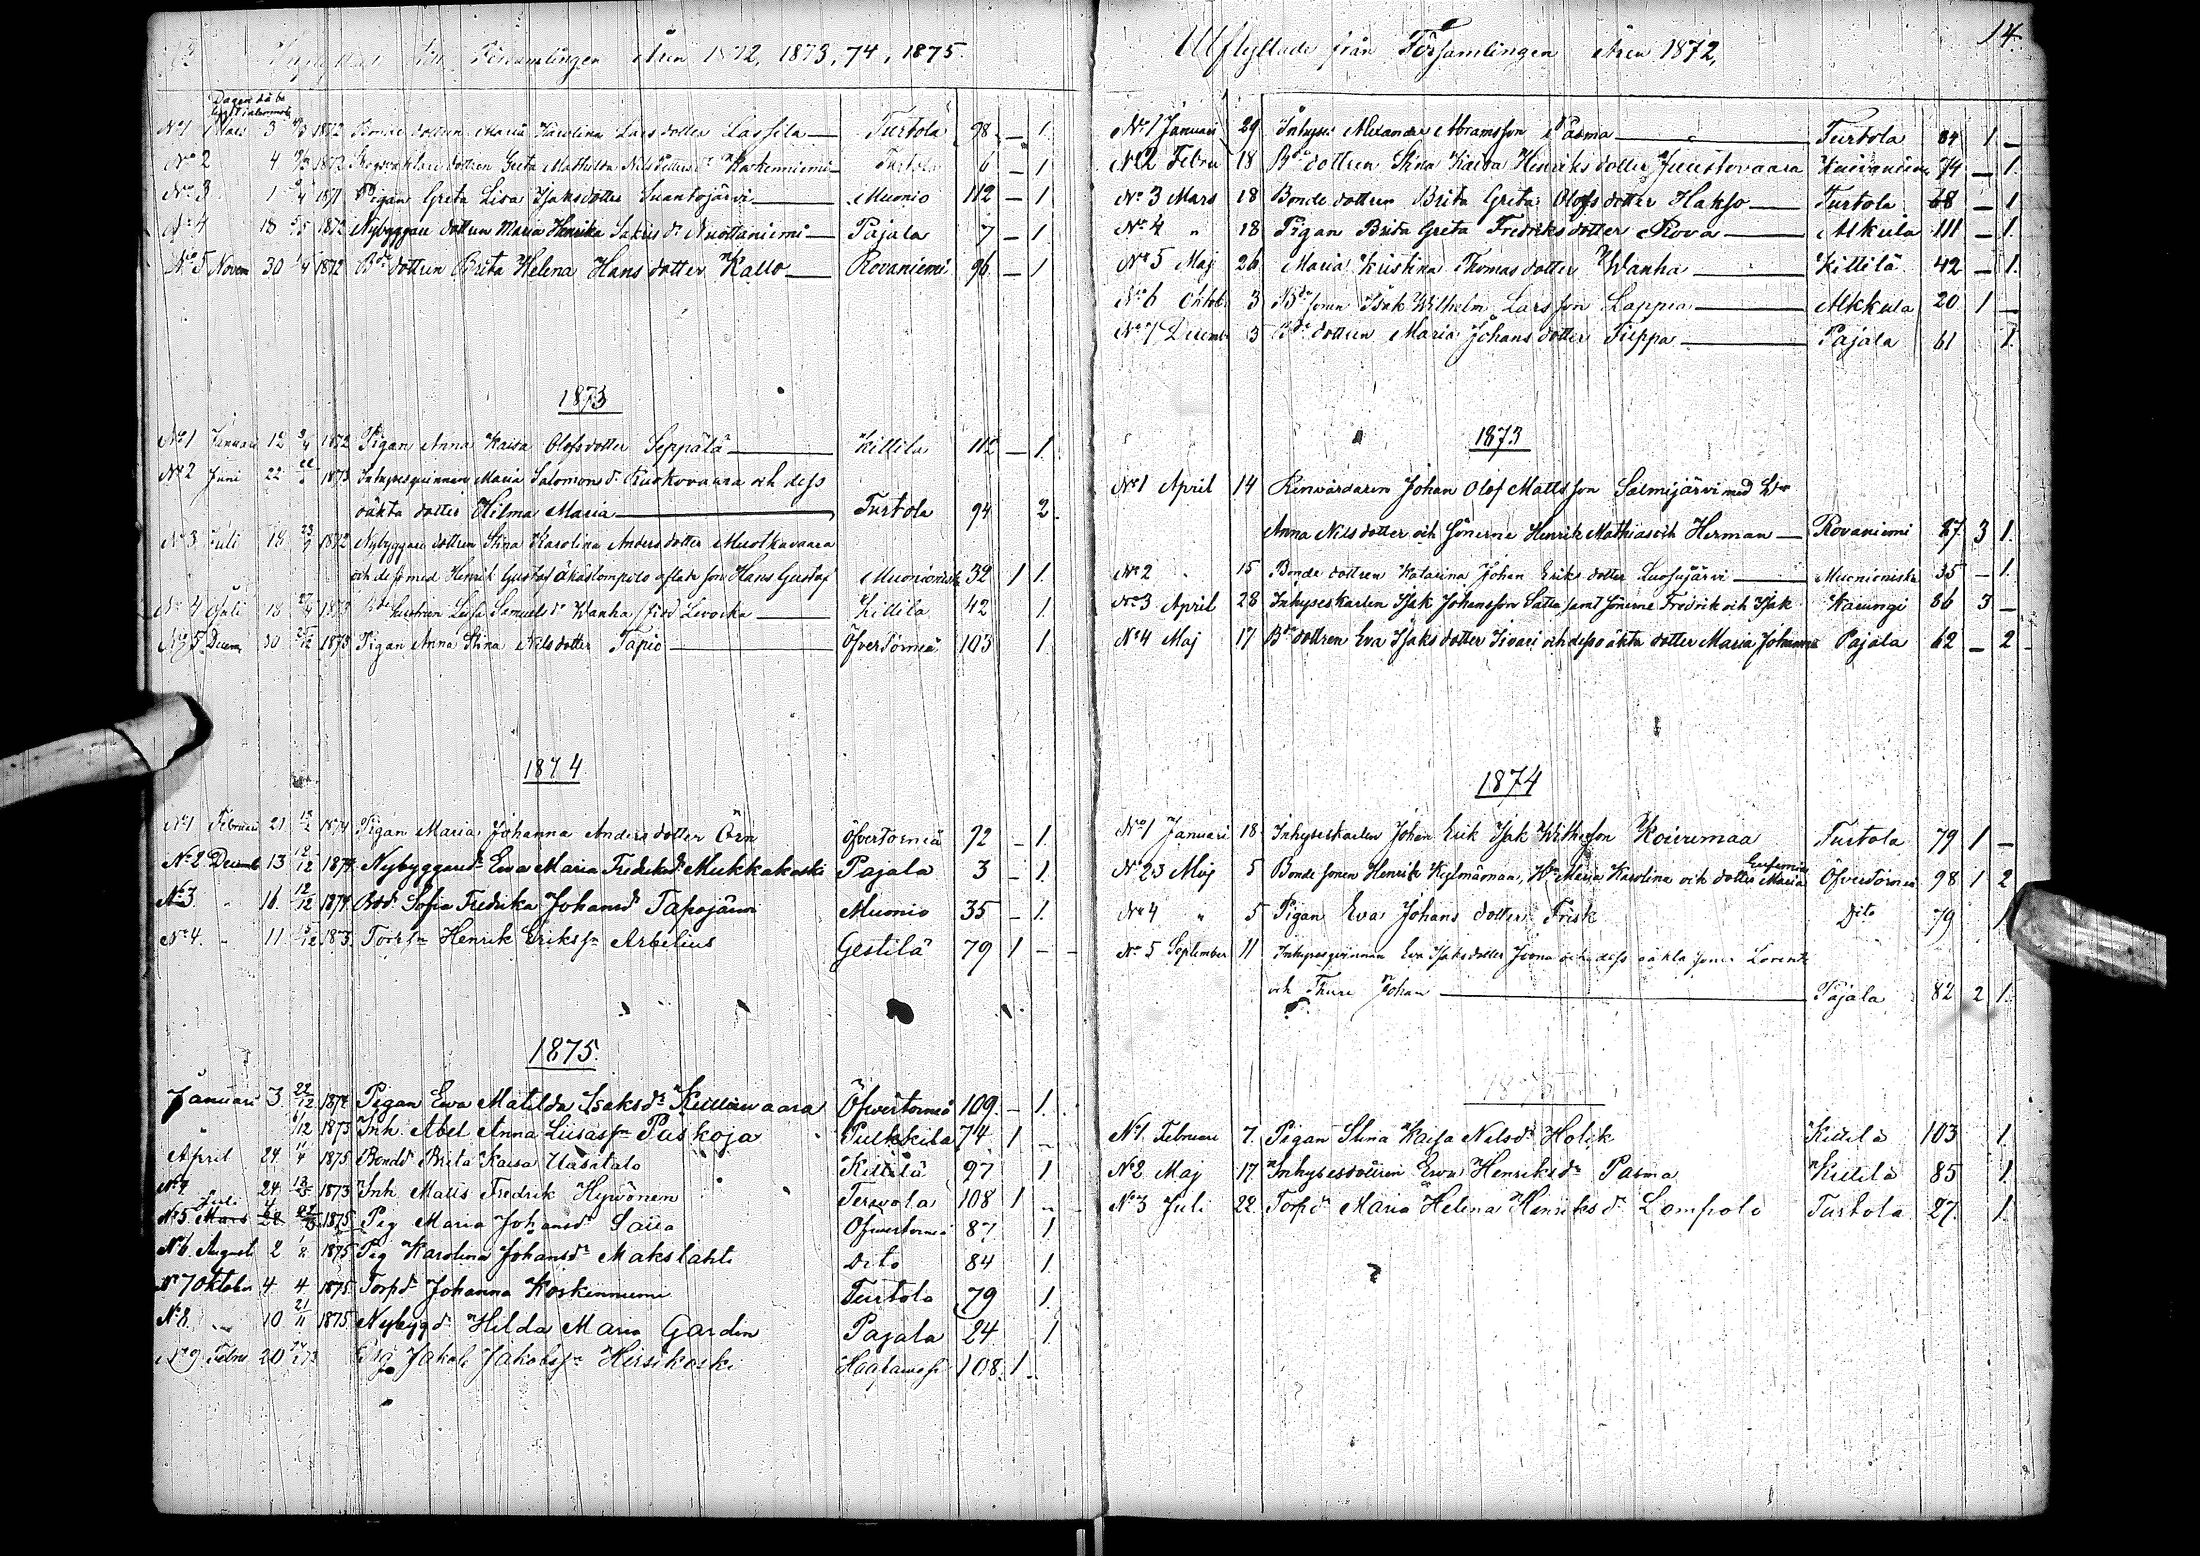 Församlingen Åren 1872, 1873, 74, 1875.
Dagen då be
No 1 Mars 3 1872 Bonde dottren Maria Karolina Lars dotter Lassila — Turtola 98 — 1
No 2 4 1872 dottren Greta Mathilda Koskenniemi — Turtola 6 — 1
No 3 1 1871 Pigan Greta Lisa Isaksdotter Suantojärvi — Muonio 112 — 1
No 4 18 1872 Nybyggare dottren Maria Henrika Nuottaniemi — Pajala 7 — 1
No 5 Novem 30 1872 Bde dottren Brita Helena Hans dotter Kallo — Rovaniemi 96 — 1
1873
No 1 Januari 12 1872 Pigan Anna Kaisa Olofsdotter Seppälä — Kittilä 112 — 1
No 2 Juni 22 1873 Inhysesqvinnan Maria Salomons dr Kuokovaara och dess
oäkta dotter Hilma Maria — Turtola 94 2
No 3 Juli 18 1872 Nybyggare dottren Stina Karolina Anders dotter Muotkavaara
och dess med Henrik Gustaf Äkäslompolo aflade son Hans Gustaf Muonionisk 32 1 1
No 4 Juli 18 1873 Lisa Samuels dr Wanha född Levoska — Kittilä 42 1
No 5 Decem 30 1873 Pigan Anna Stina Nilsdotter Tapio — ÖfverTorneå 103 1
1874
No 1 Februari 21 1874 Pigan Maria Johanna Anders dotter Örn ÖfverTorneå 72 — 1
No 2 Decemb 13 12/12 1874 Nybyggared. Eva Maria Fredriksd. Mukkakoski Pajala 3 — 1
No 3 " 16 12/12 1874 Bdd. Sofia Fredrika Johansd. Tapojärvi Muonio 35 — 1
No 4 " 11 Henrik Erikssn Arbelius Gestilä 79 1 — —
1875
Januari 3 22/12 1874 Pigan Ewa Matilda Isaksdr Kuttunwaara Öfvertorneå 109 — 1
1873 Inh. Abel Anna Liisassn Puskoja Pulkkila 74 1 —
April 24 1875 Bondd Brita Kaisa Uusitalo Kittilä 97 1
24 1873 Inh Matts Fredrik Hyvönen Tervola 108 1 —
No 5 Juli Mars 28 1875 Pig Maria Johansdr Öfvertorneå 87 1
No 6 August 2 1/8 1875 Pig Karolina Johansdr Makslahti Dito 84 1
No 7 Oktober 4 4 1875 Torpd Johanna Koskenniemi Turtola 79 1
No 8 " 10 21/11 1875 Nybygd. Hilda Maria Gardin Pajala 24 1
No 9 Febru 20 Jakob Jakobssn Hirsikoski 108 1 —
14
Utflyttade från Församlingen Åren 1872,
No 1 Januari 29 Inhyses Alexander Abramsson Pasma — Turtola 84 1 —
No 2 Febru 18 Bde dottren Stina Kaisa Henriks dotter Juustovaara Kuivaniemi 74 — 1
No 3 Mars 18 Bonde dottren Brita Greta Olofs dotter Hakso — Turtola 68 — 1
No 4 " 18 Pigan Brita Greta Fredriks dotter Rova — Alkula 111 — 1
No 5 Maj 26 Maria Kristina Thomas dotter Wanha — Kittilä 42 — 1
No 6 Oktob. 3 Bde sonen Isak Wilhelm Larsson Lappea — Alkkula 20 1 —
No 7 Decemb 13 Bde dottren Maria Johans dotter Sieppa — Pajala 61 1
1873
No 1 April 14 Renvårdaren Johan Olof Mattsson Salmijärvi med h:u
Anna Nilsdotter och Sönerne Henrik Mathias och Herman — Rovaniemi 87 3 1
No 2 " 15 Bonde dottren Katarina Johan Eriks dotter Luosujärvi — Muonioniska 35 — 1
No 3 April 28 Inhyseskarlen Isak Johansson Satta samt Sönerne Fredrik och Isak Karungi 86 3 —
No 4 Maj 17 Bde dottren Eva Isaks dotter Sivari och dess oäkta dotter Maria Johanna Pajala 62 — 2
1874
No 1 Januari 18 Inhyseskarlen Johan Erik Isak Wilhsson Koivumaa Turtola 79 1 —
No 2 3 Maj 5 Bonde sonen Henrik Kylmämaa, Hu Maria Karolina och dotter Eufemia Maria Öfvertorneå 98 1 2
No 4 " 5 Pigan Eva Johans dotter Frisk Dito 79 1
No 5 September 11 Inhysesqvinnan Eva Isaksdotter Juona och dess oäkta söner Lorents
och Thure Johan — Pajala 82 2 1
1875
No 1 Februari 7 Pigan Stina Kaisa Nilsdr Holck Kittilä 103 1
No 2 Maj 17 Inhysesdottren Ewa Henriksdr Pasma Kittilä 85 1
No 3 Juli 22 Torpd Maria Helena Henriksdr Lompolo Turtola 27 1